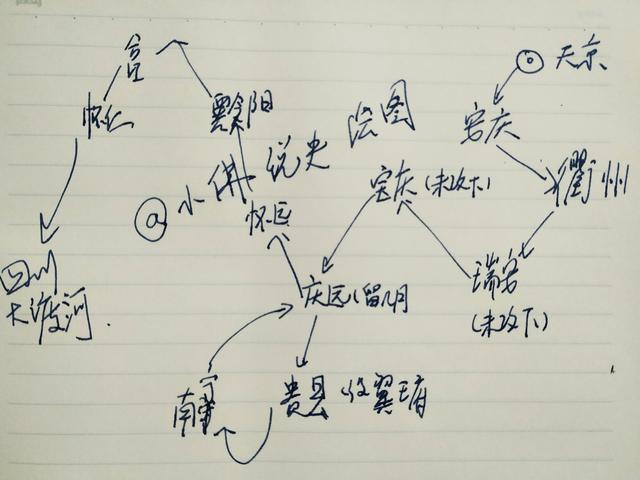 天京
安庆
衢州
瑞安
(未攻下)
宝庆(未攻下)
庆远8留8月
贵县 攻翼王府
南宁
怀远
黔阳
合
怀仁
四川
大渡河.
@小佛说史 绘图